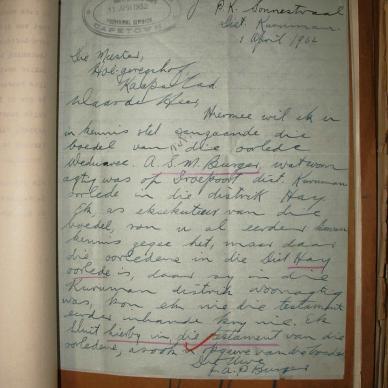 P.K. Sonnestraal
Dist. Kuruman
1 April 1962
CAPETOWN
Die Meester,
Hooggeregshof,
Kaapstad
Waarde Heer,
Hiermee wil ek u
in kennis stel aangaande die
boedel van die oorlede
Weduwee. A. S. M. Burger, wat woon
agtig was op Groepoort dist. Kuruman
oorlede in die distrik Hay
Ek, as eksekuteur van die
boedel, van u al eerder
kennis gegee het, maar daar
die oorledene in die Dist Hay
oorlede is, daar sy in die
Kuruman distrik woonagtig
was, kon ek nie die testament
eerder inhande kry nie. Ek
sluit hierby in, die testament van die
oorledene, asook opgawe van die boedel
Burger